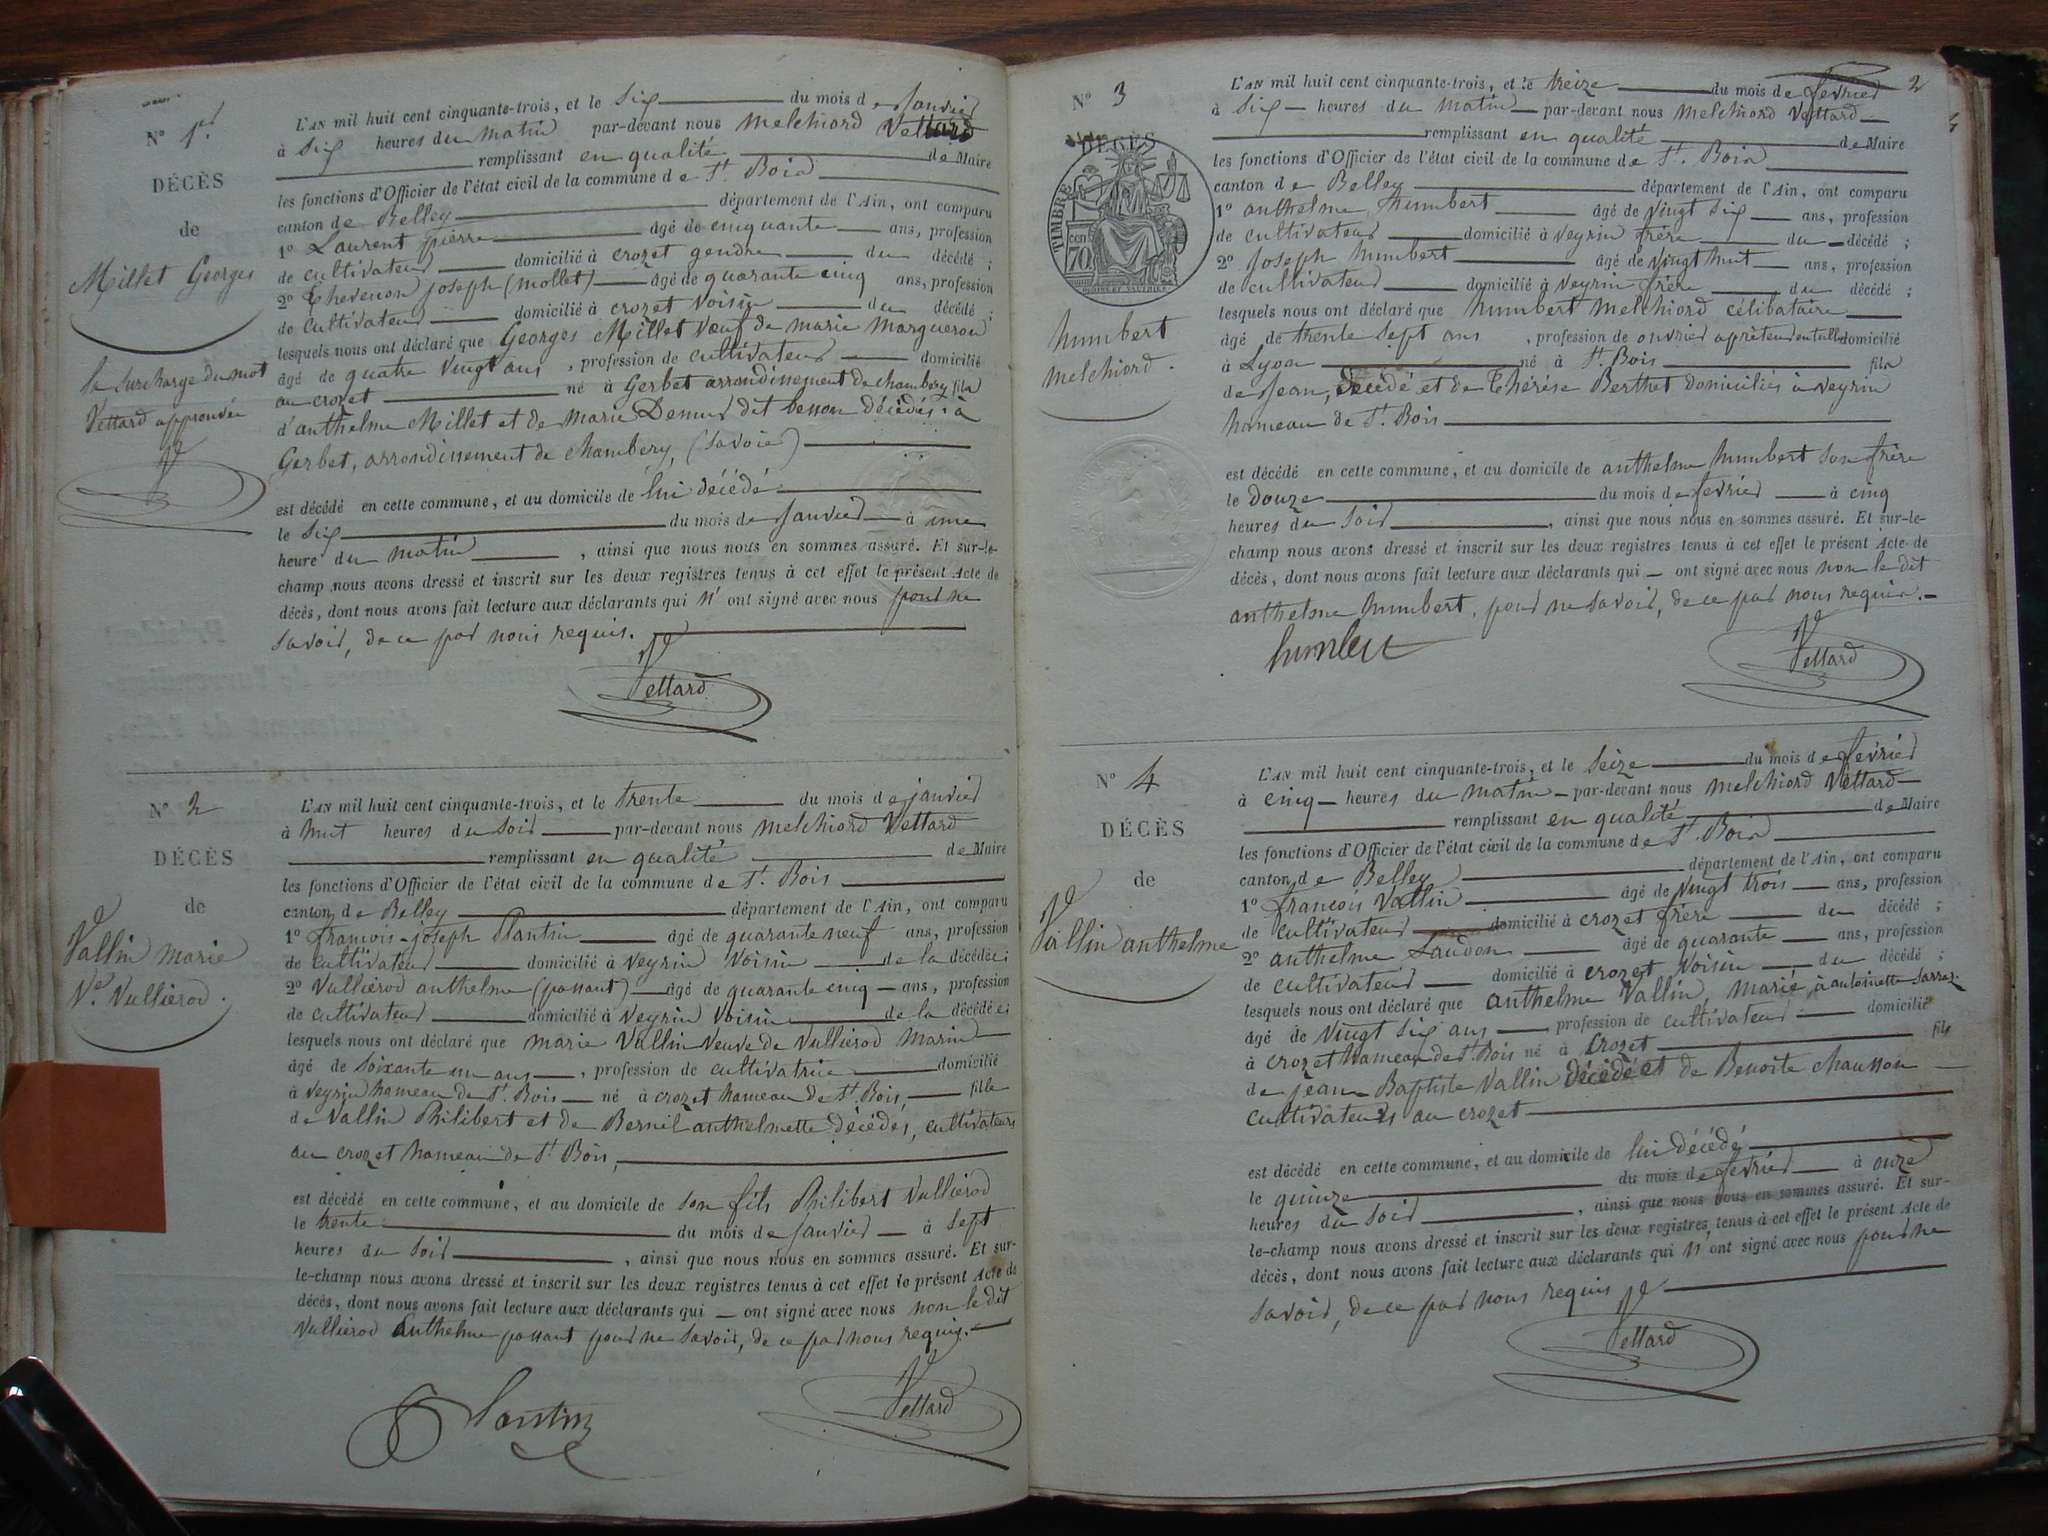 N° 1er
DÉCÈS
de
Millet Georges
la Surcharge du mot
Vettard approuvée
L'AN mil huit cent cinquante-trois, et le Six du mois de Janvier
à Six heures du matin par-devant nous Melchiord Vettard
remplissant en qualité de Maire
les fonctions d'Officier de l'état civil de la commune de St. Bois
canton de Belley département de l'Ain, ont comparu
1° Laurent pierre âgé de cinquante ans, profession
de cultivateur domicilié à crozet gendre du décédé ;
2° Thevenon joseph (mollet) âgé de quarante cinq ans, profession
de cultivateur domicilié à crozet Voisin du décédé ;
lesquels nous ont déclaré que Georges Millet Vœuf de marie Margueron
âgé de quatre Vingt ans , profession de cultivateur domicilié
au crozet né à Gerbet arrondinement de chambery fils
d'anthelme Millet et de Marie Demur dit benon décédés à
Gerbet, arrondinement de chambery, (Savoie)
est décédé en cette commune, et au domicile de lui décédé
le Six du mois de Janvier à une
heure du matin , ainsi que nous nous en sommes assuré. Et sur-le-
champ nous avons dressé et inscrit sur les deux registres tenus à cet effet le présent Acte de
décès, dont nous avons fait lecture aux déclarants qui n' ont signé avec nous pour ne
savoir, de ce par nous requis.
Vettard
N° 2
DÉCÈS
de
Vallin marie
Ve. Vullierod.
L'AN mil huit cent cinquante-trois, et le trente du mois de janvier
à huit heures du Soir par-devant nous Melchiord Vettard
remplissant en qualité de Maire
les fonctions d'Officier de l'état civil de la commune de St. Bois
canton de Belley département de l'Ain, ont comparu
1° françois-joseph Plantin âgé de quarante neuf ans, profession
de cultivateur domicilié à Veyrin Voisin de la décédée;
2° Vullierod anthelme (passant) âgé de quarante cinq ans, profession
de cultivateur domicilié à Veyrin Voisin de la décédée;
lesquels nous ont déclaré que marie Vallin Veuve de Vullierod Marin
âgé de Soixante un ans , profession de cultivatrice domicilié
à Veyrin hameau de St. Bois né à crozet hameau de St. Bois, fille
de Vallin Philibert et de Bernil anthelmette décédés, cultivateurs
au crozet hameau de St Bois,
est décédé en cette commune, et au domicile de son fils Philibert Vullierod
le trente du mois de Janvier à Sept
heures du Soir , ainsi que nous nous en sommes assuré. Et sur-
le-champ nous avons dressé et inscrit sur les deux registres tenus à cet effet le présent Acte de
décès, dont nous avons fait lecture aux déclarants qui ont signé avec nous non le dit
Vullierod Anthelme passant pour ne savoir, de ce par nous requis.
Plantin
Vettard
2
N° 3
DÉCÈS
TIMBRE
70 cen
humbert
melchiord.
L'AN mil huit cent cinquante-trois, et le treize du mois de fevrier
à Six heures du matin par-devant nous Melchiord Vettard
remplissant en qualité de Maire
les fonctions d'Officier de l'état civil de la commune de St. Bois
canton de Belley département de l'Ain, ont comparu
1° anthelme humbert âgé de Vingt Six ans, profession
de cultivateur domicilié à Veyrin frère du décédé ;
2° Joseph humbert âgé de Vingt huit ans, profession
de cultivateur domicilié à Veyrin frère du décédé ;
lesquels nous ont déclaré que humbert Melchiord célibataire
âgé de trente Sept ans , profession de ouvrier domicilié
à Lyon né à St. Bois fils
de Jean, décédé et de Thérèse Berthet domiciliés à Veyrin
hameau de St. Bois
est décédé en cette commune, et au domicile de anthelme humbert son frère
le douze du mois de fevrier à cinq
heures du Soir , ainsi que nous nous en sommes assuré. Et sur-le-
champ nous avons dressé et inscrit sur les deux registres tenus à cet effet le présent Acte de
décès, dont nous avons fait lecture aux déclarants qui ont signé avec nous non le dit
anthelme humbert, pour ne savoir, de ce par nous requis.
humbert
Vettard
N° 4
DÉCÈS
de
Vallin anthelme
L'AN mil huit cent cinquante-trois, et le Seize du mois de fevrier
à cinq heures du matin par-devant nous Melchiord Vettard
remplissant en qualité de Maire
les fonctions d'Officier de l'état civil de la commune de St. Bois
canton de Belley département de l'Ain, ont comparu
1° françois Vallin âgé de Vingt trois ans, profession
de cultivateur domicilié à crozet frère du décédé ;
2° anthelme Laudon âgé de quarante ans, profession
de cultivateur domicilié à crozet Voisin du décédé ;
lesquels nous ont déclaré que anthelme Vallin, marié à antoinette
âgé de Vingt Six ans profession de cultivateur domicilié
à crozet hameau de St. Bois né à crozet fils
de jean-Baptiste Vallin décédé et de Benoite chausson
cultivateurs au crozet
est décédé en cette commune, et au domicile de lui décédé
le quinze du mois de fevrier à onze
heures du Soir , ainsi que nous nous en sommes assuré. Et sur-
le-champ nous avons dressé et inscrit sur les deux registres tenus à cet effet le présent Acte de
décès, dont nous avons fait lecture aux déclarants qui n' ont signé avec nous pour ne
savoir, de ce par nous requis
Vettard